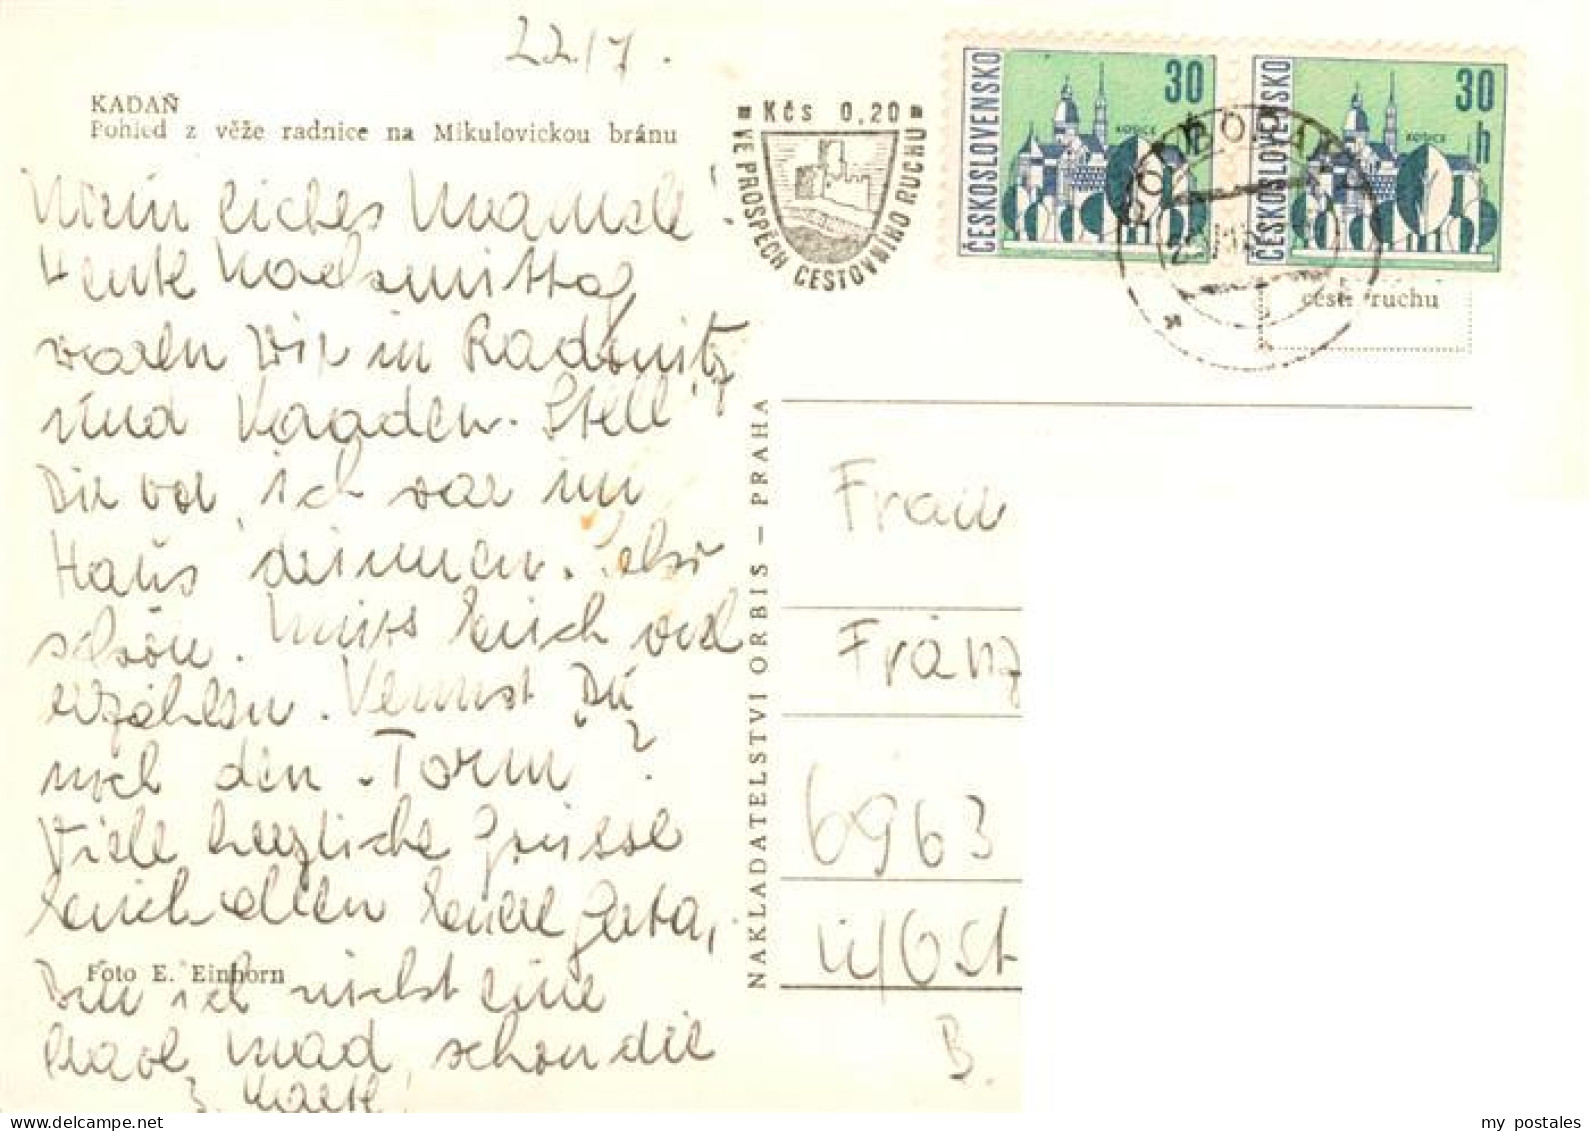 22/7.
KADAŇ
Pohled z věže radnice na Mikulovickou bránu
Kčs 0,20
VE PROSPĚCH CESTOVNÍHO RUCHU
ČESKOSLOVENSKO
30 h
KOŠICE
ČESKOSLOVENSKO
30 h
KOŠICE
cest. ruchu
liebes
waren wir in Radonitz
und Kaaden. Stell
Dir vor, ich war im
Haus drinnen.
schön. Muss Euch viel
erzählen. Kennst Du
noch den "Torm"?
Viele herzliche Grüsse
Euch allen Eure Gerta,
Bin ich nicht eine
brave Mad, schon die
3. Karte!
Foto E. Einhorn
NAKLADATELSTVÍ ORBIS — PRAHA
Frau
Franz
6963
ü/Ost
B.
my postales